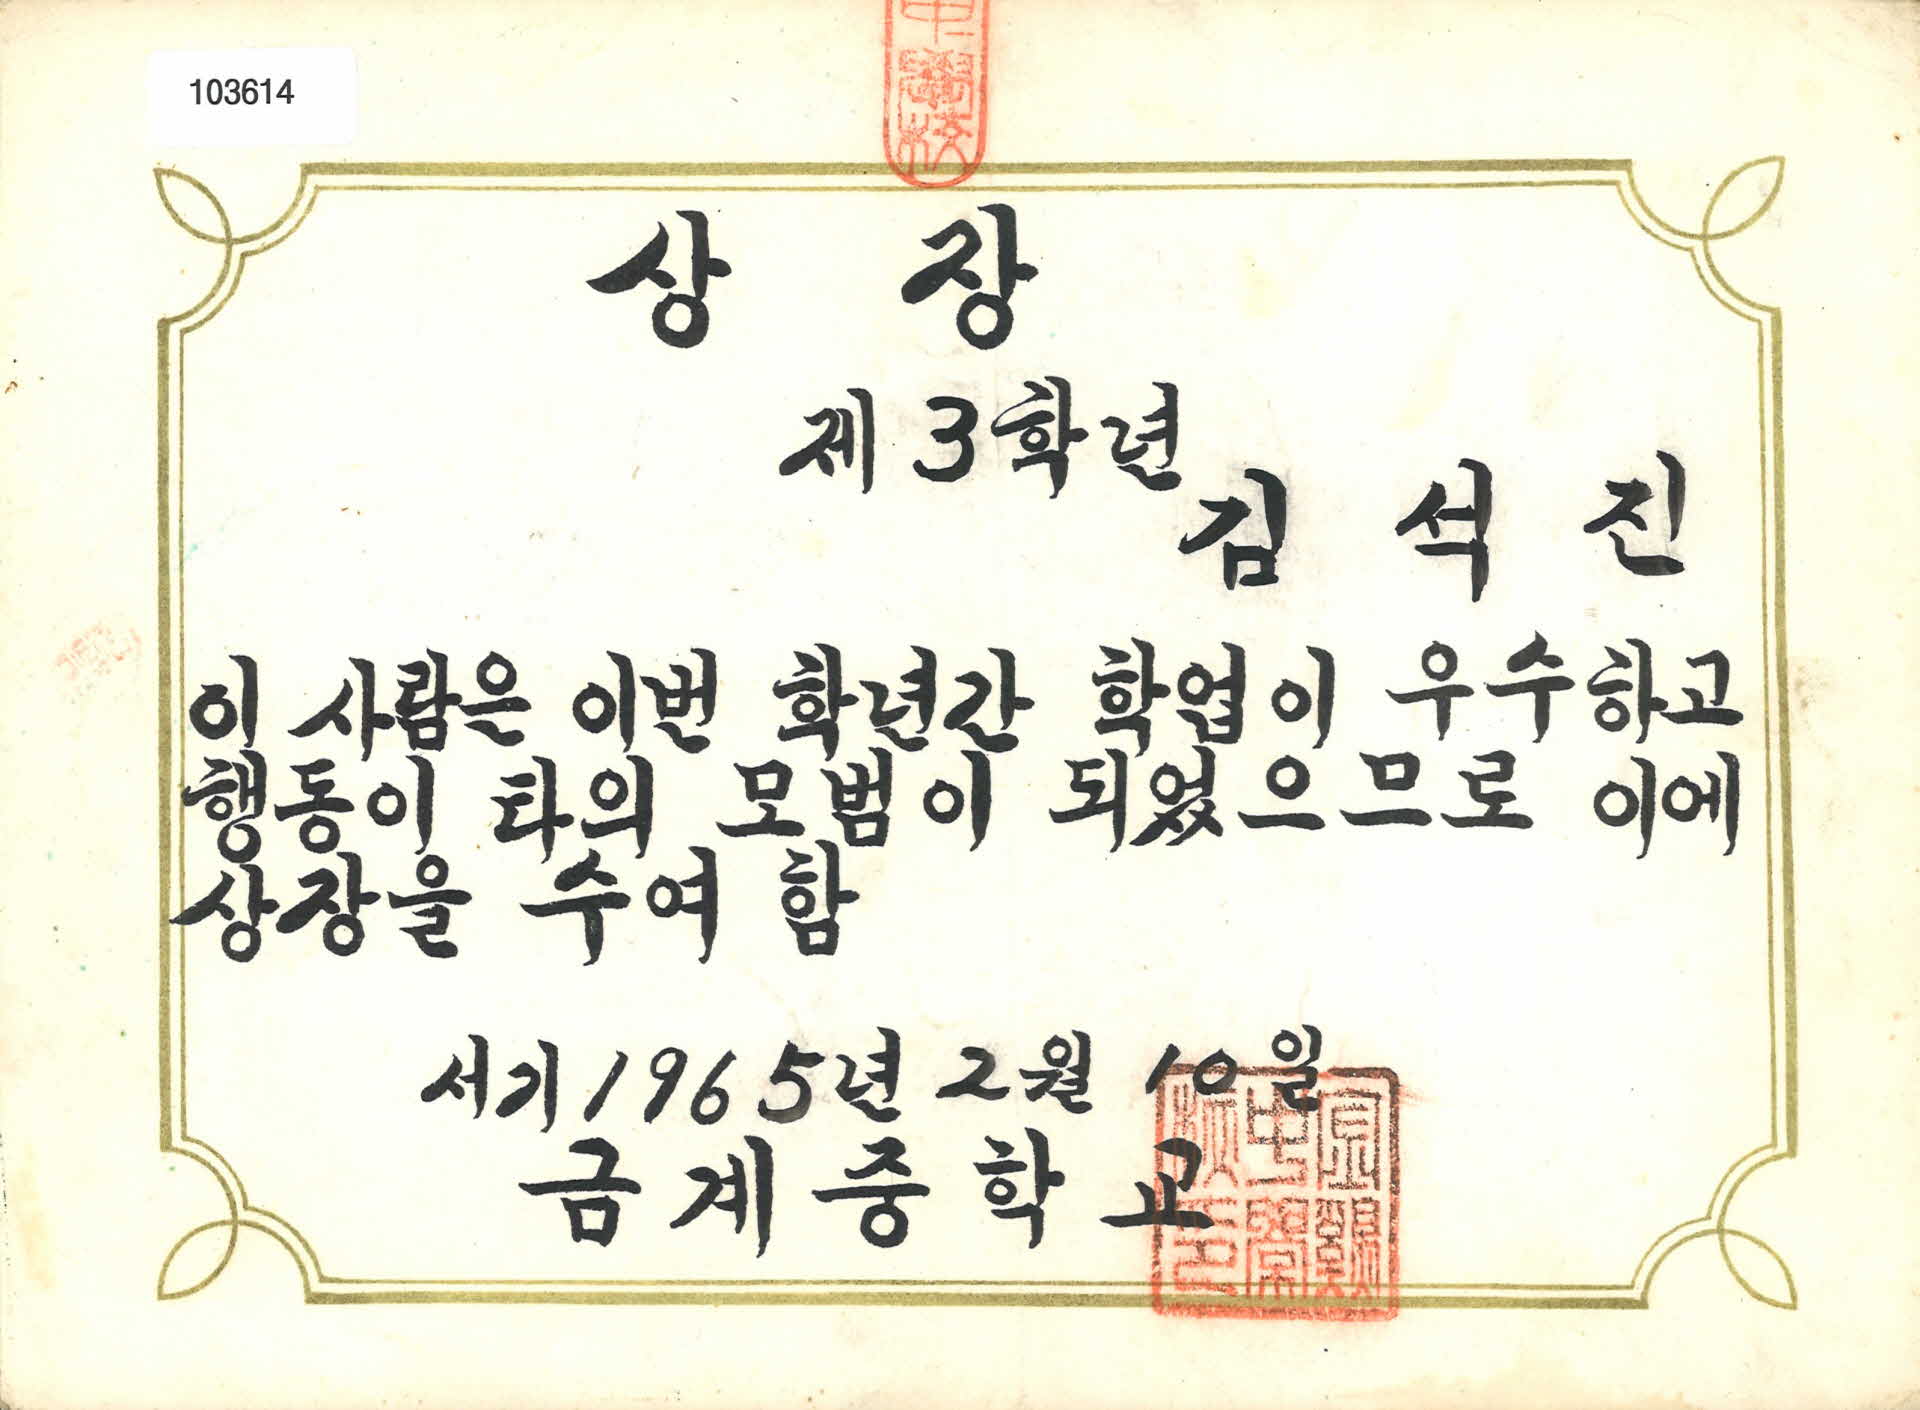 103614
상 장
제 3학년
김 석 진
이 사람은 이번 학년간 학업이 우수하고
행동이 타의 모범이 되었으므로 이에
상장을 수여 함
서기 1965년 2월 10일
금계중학고